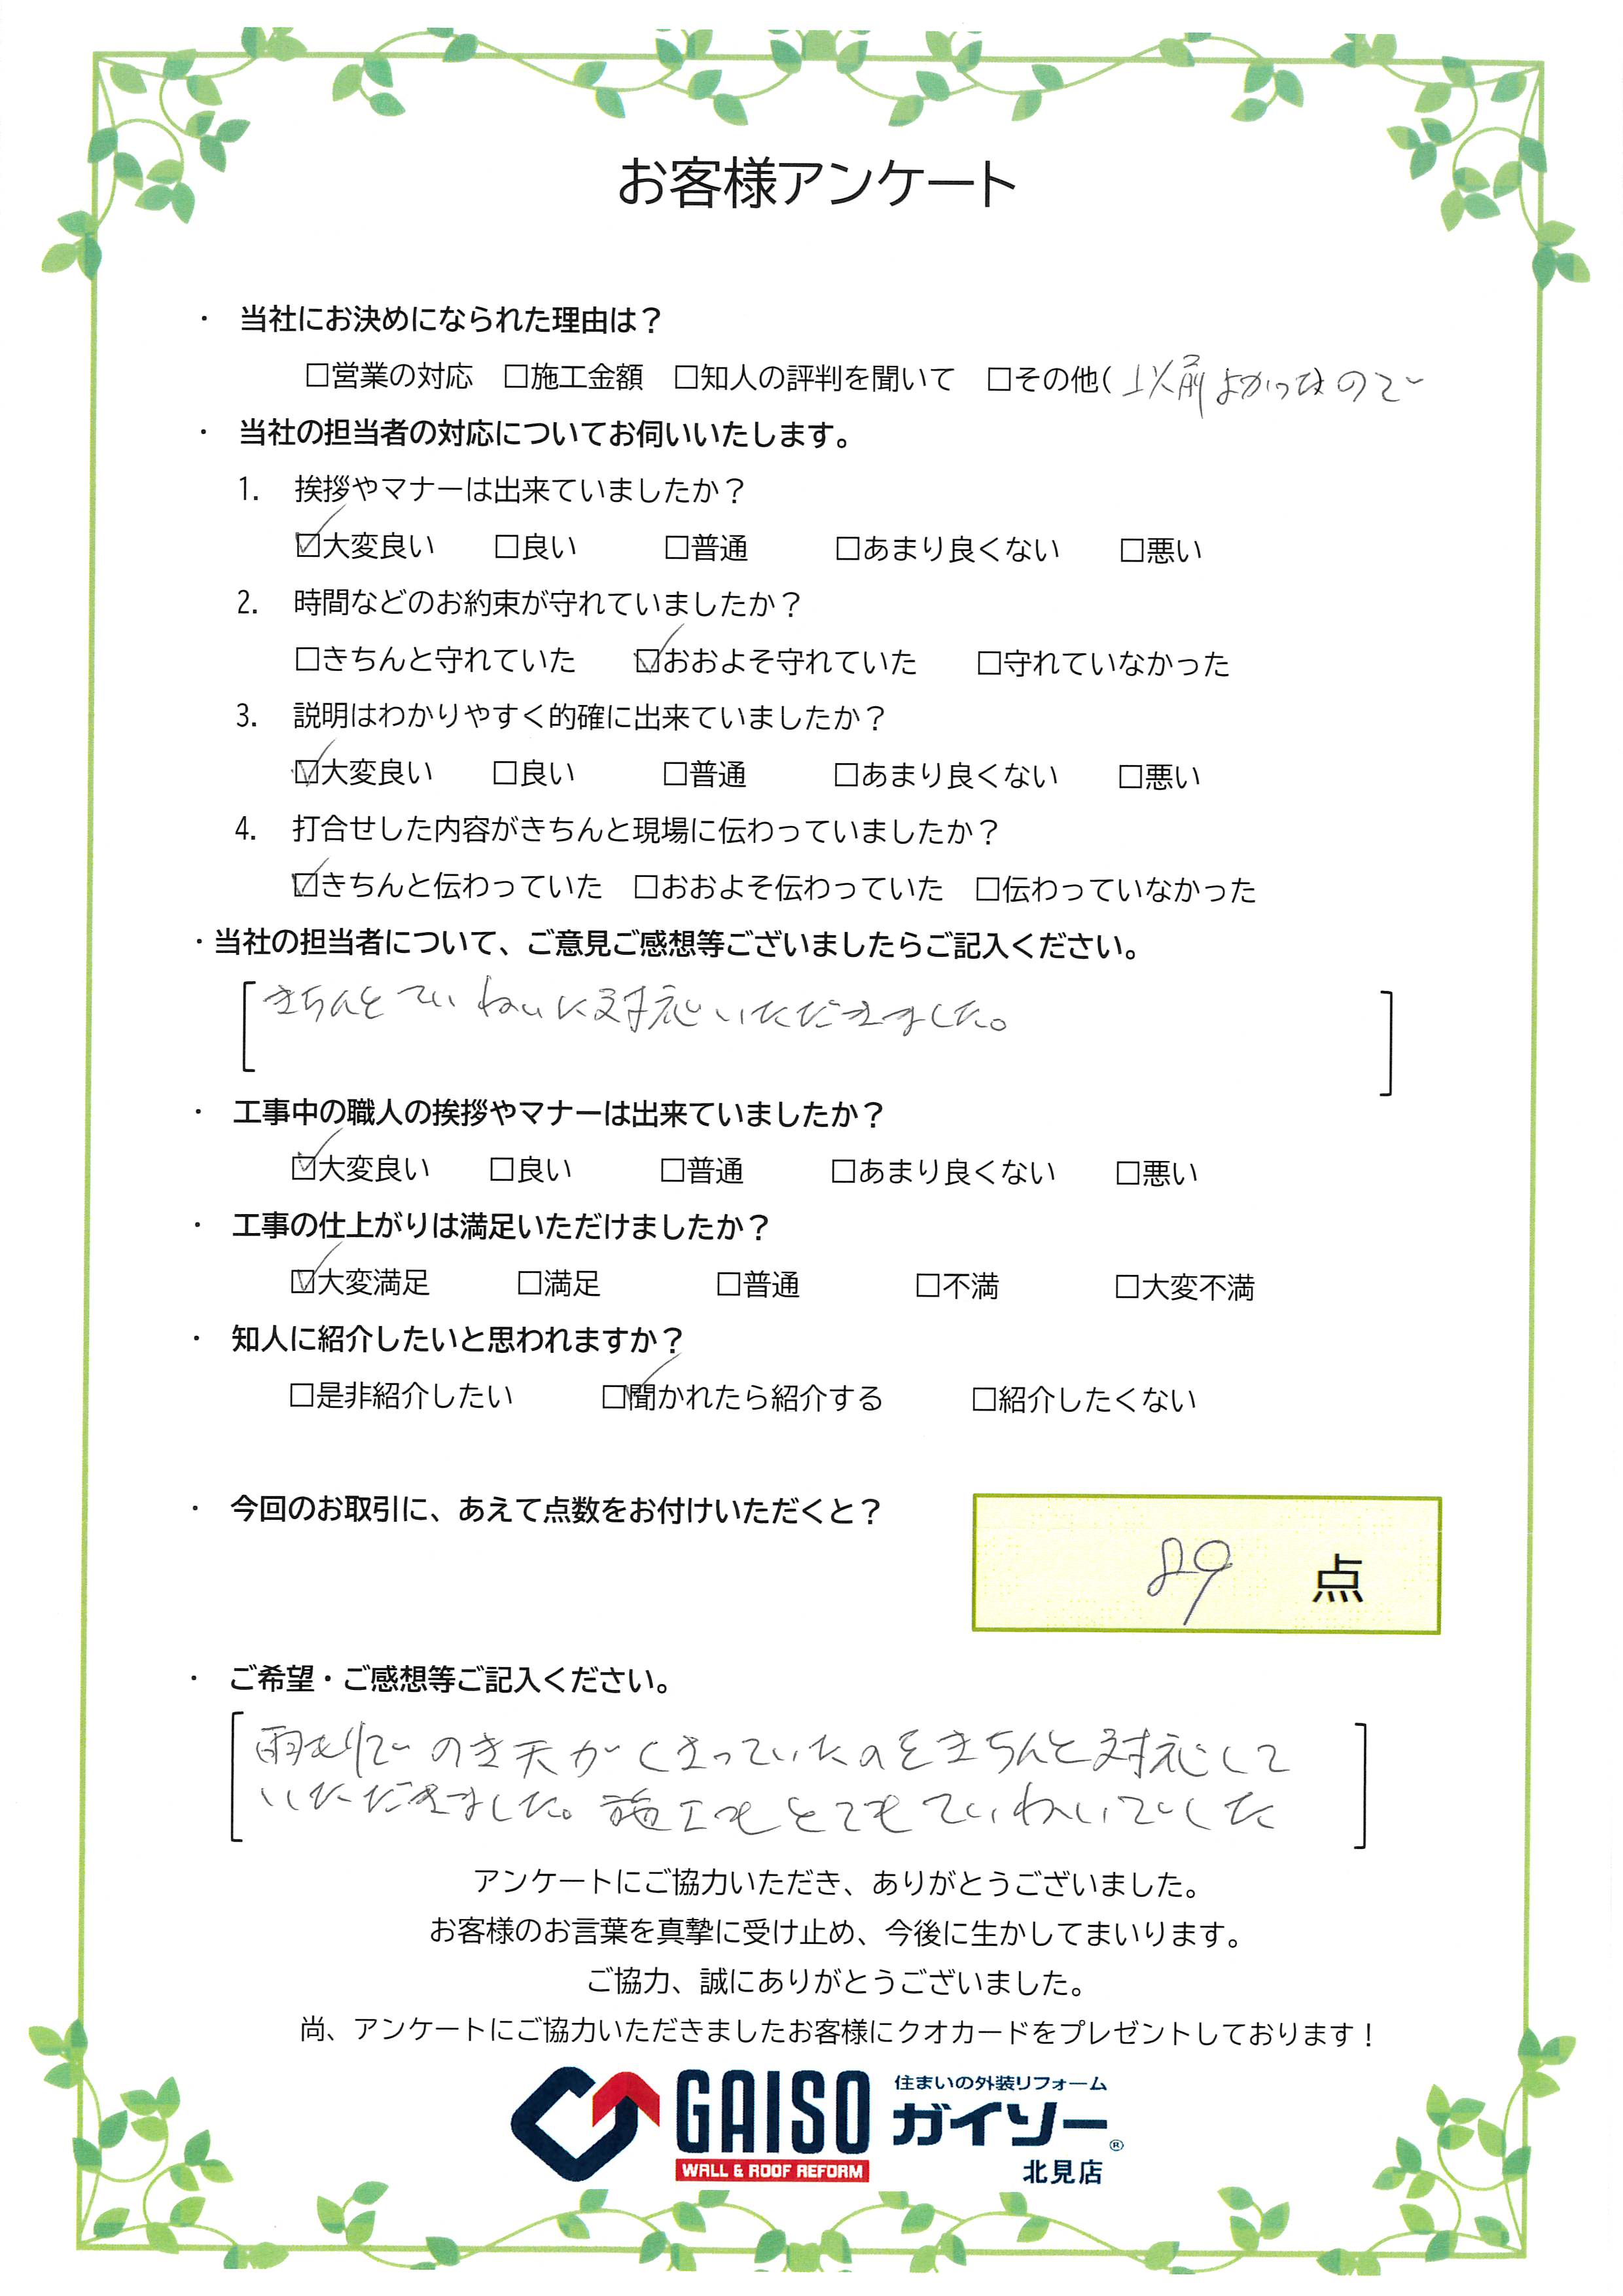 お客様アンケート
・ 当社にお決めになられた理由は？
□営業の対応 □施工金額 □知人の評判を聞いて □その他( 以前よかったので
・ 当社の担当者の対応についてお伺いいたします。
1. 挨拶やマナーは出来ていましたか？
☑大変良い □良い □普通 □あまり良くない □悪い
2. 時間などのお約束が守れていましたか？
□きちんと守れていた ☑おおよそ守れていた □守れていなかった
3. 説明はわかりやすく的確に出来ていましたか？
☑大変良い □良い □普通 □あまり良くない □悪い
4. 打合せした内容がきちんと現場に伝わっていましたか？
☑きちんと伝わっていた □おおよそ伝わっていた □伝わっていなかった
・当社の担当者について、ご意見ご感想等ございましたらご記入ください。
きちんとていねいに対応いただきました。
・ 工事中の職人の挨拶やマナーは出来ていましたか？
☑大変良い □良い □普通 □あまり良くない □悪い
・ 工事の仕上がりは満足いただけましたか？
☑大変満足 □満足 □普通 □不満 □大変不満
・ 知人に紹介したいと思われますか？
□是非紹介したい ☑聞かれたら紹介する □紹介したくない
・ 今回のお取引に、あえて点数をお付けいただくと？
89 点
・ ご希望・ご感想等ご記入ください。
雨もりでのき天がくさっていたのをきちんと対応して
いただきました。施工もとてもていねいでした
アンケートにご協力いただき、ありがとうございました。
お客様のお言葉を真摯に受け止め、今後に生かしてまいります。
ご協力、誠にありがとうございました。
尚、アンケートにご協力いただきましたお客様にクオカードをプレゼントしております！
GAISO
WALL & ROOF REFORM
住まいの外装リフォーム
ガイソー®
北見店